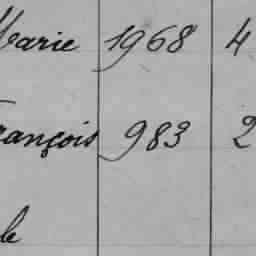 Marie 1968 4
François 983 2
le